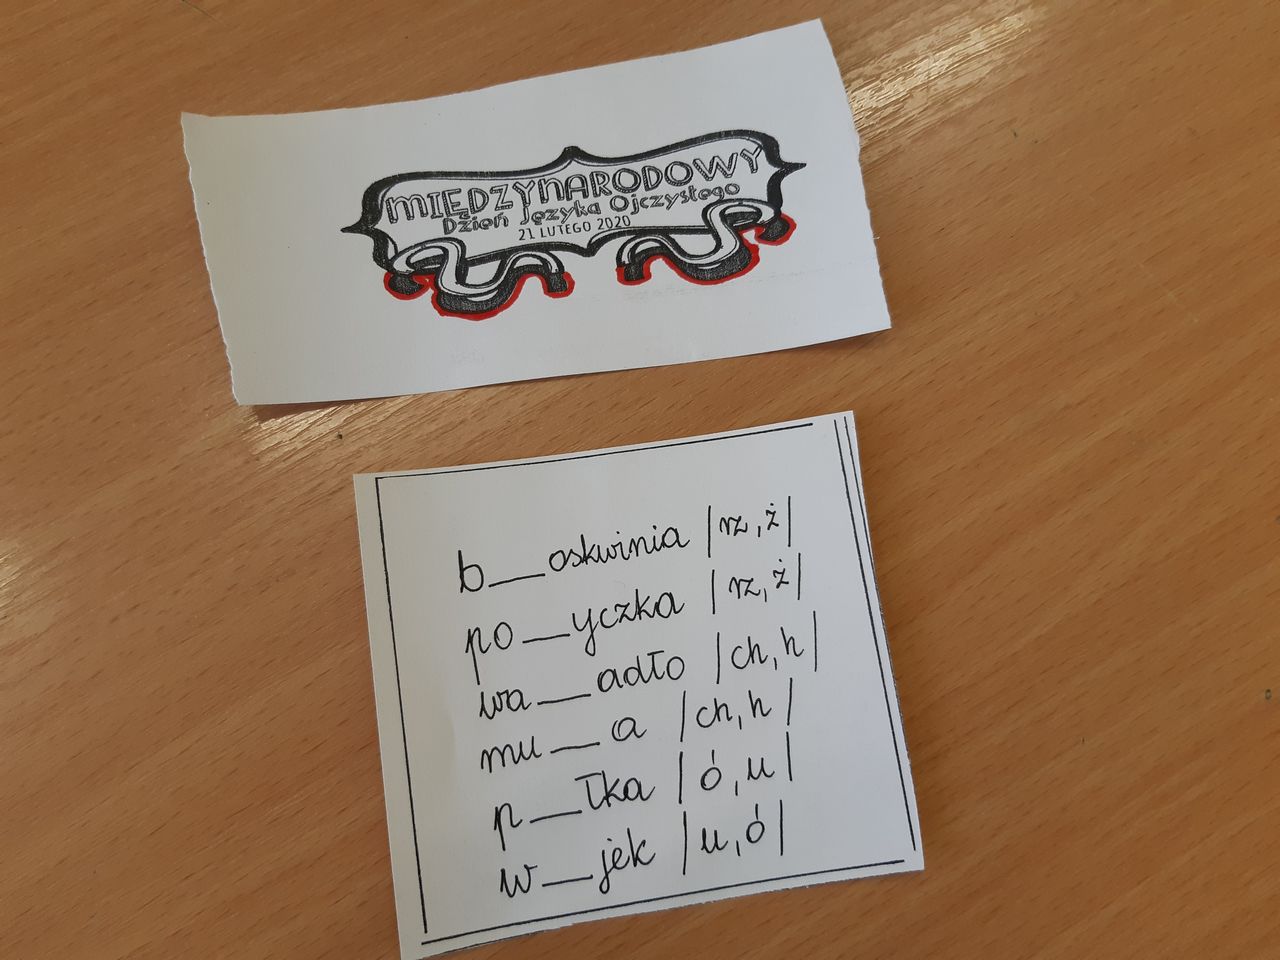 MIĘDZYNARODOWY
Dzień Języka Ojczystego
21 LUTEGO 2020
b__oskwinia |rz, ż|
po__yczka |rz, ż|
wa__adło |ch, h|
mu__a |ch, h|
p__łka |ó, u|
w__jek |u, ó|